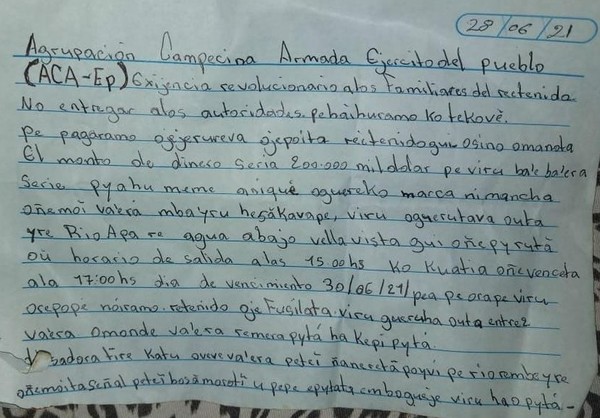 28/06/21
Agrupación Campecina Armada Ejercito del pueblo
(ACA-Ep) Exijencia revolucionario alos Familiares del rectenida
No entregar alos autoridades. pebaihuramo ko tekovē.
pe pagáramo ojejerureva ojepoita rectenidogui osino omanota
El monto de dinero seria 200.000 mil dolar pe viru ba'e ba'era
Serie pyahu meme aniquē oguereko marca ni mancha
oñemoī va'erā mbayru hesākavape, viru oguerutava outa
yre Rio Apa re agua abajo vella vista gui oñepyrutā
où horario de salida alas 15:00hs ko kuatia oñevenceta
ala 17:00hs dia de vencimiento 30/06/21/ pea pe orape viru
ocepope nóiramo. retenido oje Fusilata. viru gueruha outa entre 2
va'era omonde va'era remera pytá há Kepi pytá.
sadora tire katu oveve va'era peteī ñancetá poyvi pe rio rembe yre
oñemoita señal peteī bosa morotī u pepe epytata embogueje viru hao pytá-